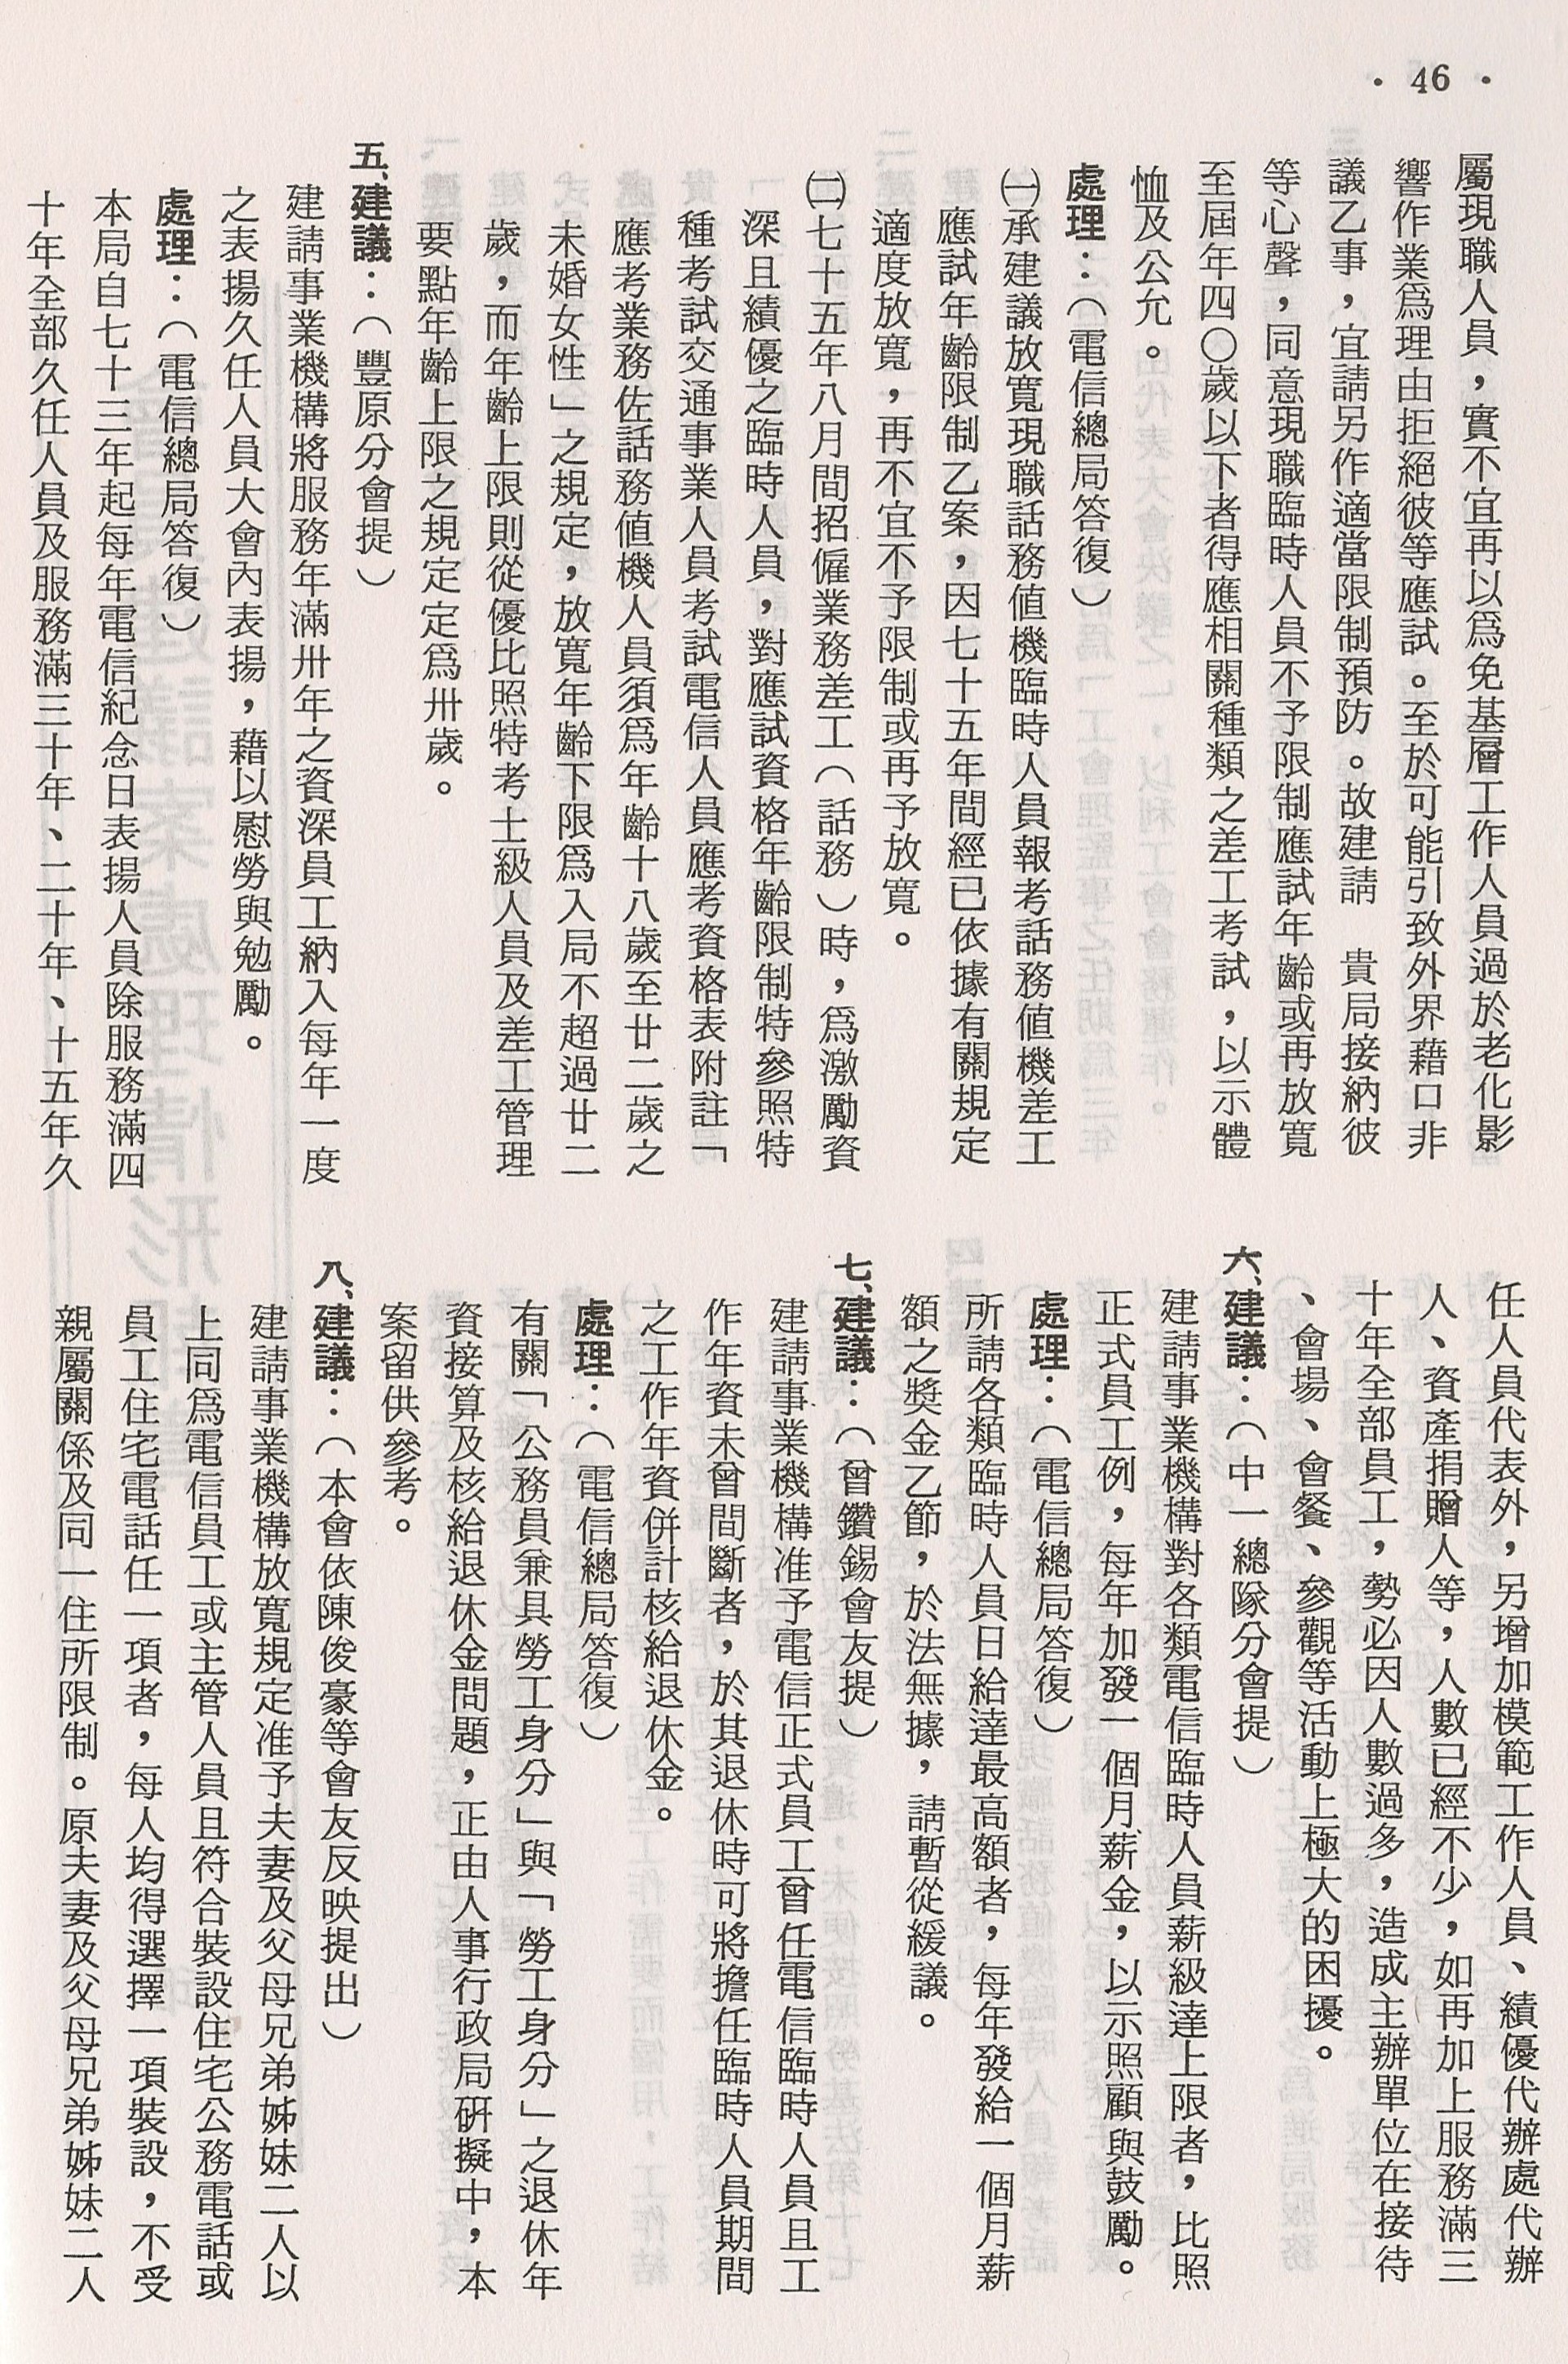 • 46 •
屬現職人員，實不宜再以爲免基層工作人員過於老化影
響作業爲理由拒絕彼等應試。至於可能引致外界藉口非
議乙事，宜請另作適當限制預防。故建請　貴局接納彼
等心聲，同意現職臨時人員不予限制應試年齡或再放寬
至屆年四〇歲以下者得應相關種類之差工考試，以示體
恤及公允。
處理：（電信總局答復）
㈠承建議放寬現職話務值機臨時人員報考話務值機差工
應試年齡限制乙案，因七十五年間經已依據有關規定
適度放寬，再不宜不予限制或再予放寬。
㈡七十五年八月間招僱業務差工（話務）時，爲激勵資
深且績優之臨時人員，對應試資格年齡限制特參照特
種考試交通事業人員考試電信人員應考資格表附註「
應考業務佐話務值機人員須爲年齡十八歲至廿二歲之
未婚女性」之規定，放寬年齡下限爲入局不超過廿二
歲，而年齡上限則從優比照特考士級人員及差工管理
要點年齡上限之規定定爲卅歲。
五、建議：（豐原分會提）
建請事業機構將服務年滿卅年之資深員工納入每年一度
之表揚久任人員大會內表揚，藉以慰勞與勉勵。
處理：（電信總局答復）
本局自七十三年起每年電信紀念日表揚人員除服務滿四
十年全部久任人員及服務滿三十年、二十年、十五年久
任人員代表外，另增加模範工作人員、績優代辦處代辦
人、資產捐贈人等，人數已經不少，如再加上服務滿三
十年全部員工，勢必因人數過多，造成主辦單位在接待
、會場、會餐、參觀等活動上極大的困擾。
六、建議：（中一總隊分會提）
建請事業機構對各類電信臨時人員薪級達上限者，比照
正式員工例，每年加發一個月薪金，以示照顧與鼓勵。
處理：（電信總局答復）
所請各類臨時人員日給達最高額者，每年發給一個月薪
額之奬金乙節，於法無據，請暫從緩議。
七、建議：（曾鑽錫會友提）
建請事業機構准予電信正式員工曾任電信臨時人員且工
作年資未曾間斷者，於其退休時可將擔任臨時人員期間
之工作年資併計核給退休金。
處理：（電信總局答復）
有關「公務員兼具勞工身分」與「勞工身分」之退休年
資接算及核給退休金問題，正由人事行政局硏擬中，本
案留供參考。
八、建議：（本會依陳俊豪等會友反映提出）
建請事業機構放寬規定准予夫妻及父母兄弟姊妹二人以
上同爲電信員工或主管人員且符合裝設住宅公務電話或
員工住宅電話任一項者，每人均得選擇一項裝設，不受
親屬關係及同一住所限制。原夫妻及父母兄弟姊妹二人